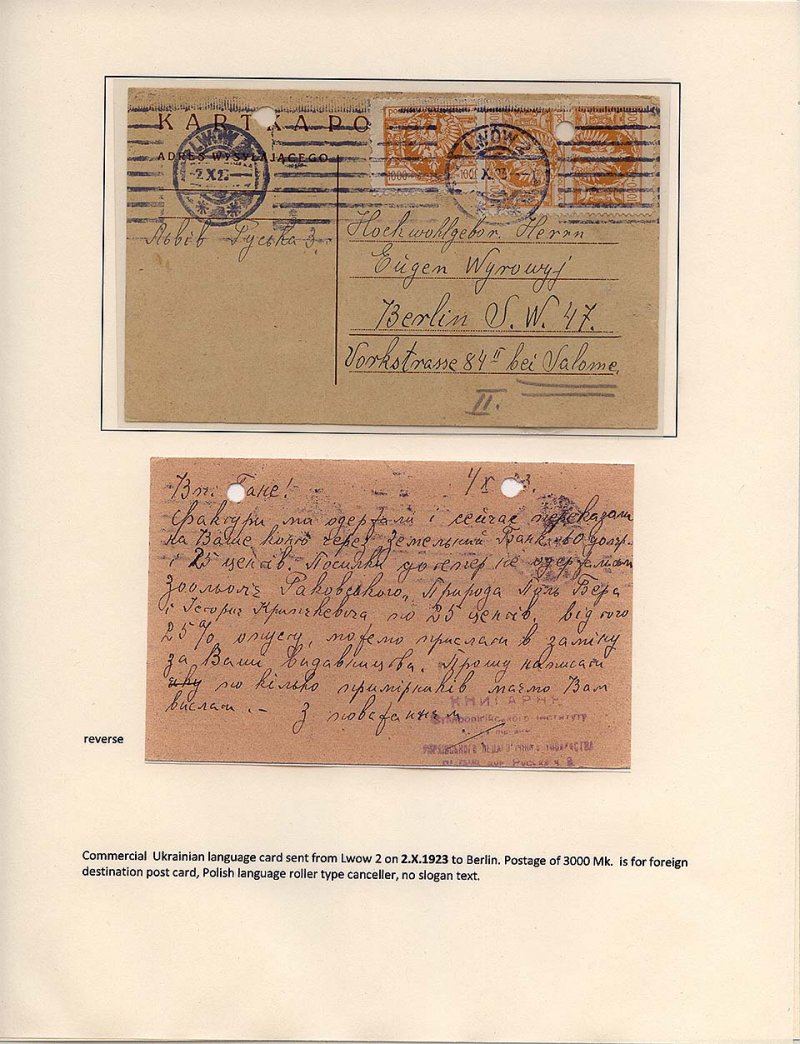 KARTKA PO
ADRES WYSYŁAJĄCEGO
LWÓW 2
2.X.23
LWÓW 2
1000
Львів Руська 3.
Hochwohlgebor. Herrn
Eugen Wyrowyj
Berlin S. W. 47.
Yorkstrasse 84 II bei Salome.
II.
Вп. Пане!
Фактури ми одержали і сейчас переказали
на Ваше конто через Земельний Банк
і 25 центів. Посилки дотепер не одержали
Раковського, Природа Поль Бера
і Історія Крипякевича по 25 центів, від того
25% опусту, можемо прислати в заміну
за Ваші видавництва. Прошу написати
по кілько примірників маємо Вам
вислати. — З поважаннєм
КНИГАРНЯ
Ставропігійського інституту
педагогічного товариства
reverse
Commercial Ukrainian language card sent from Lwow 2 on 2.X.1923 to Berlin. Postage of 3000 Mk. is for foreign
destination post card, Polish language roller type canceller, no slogan text.